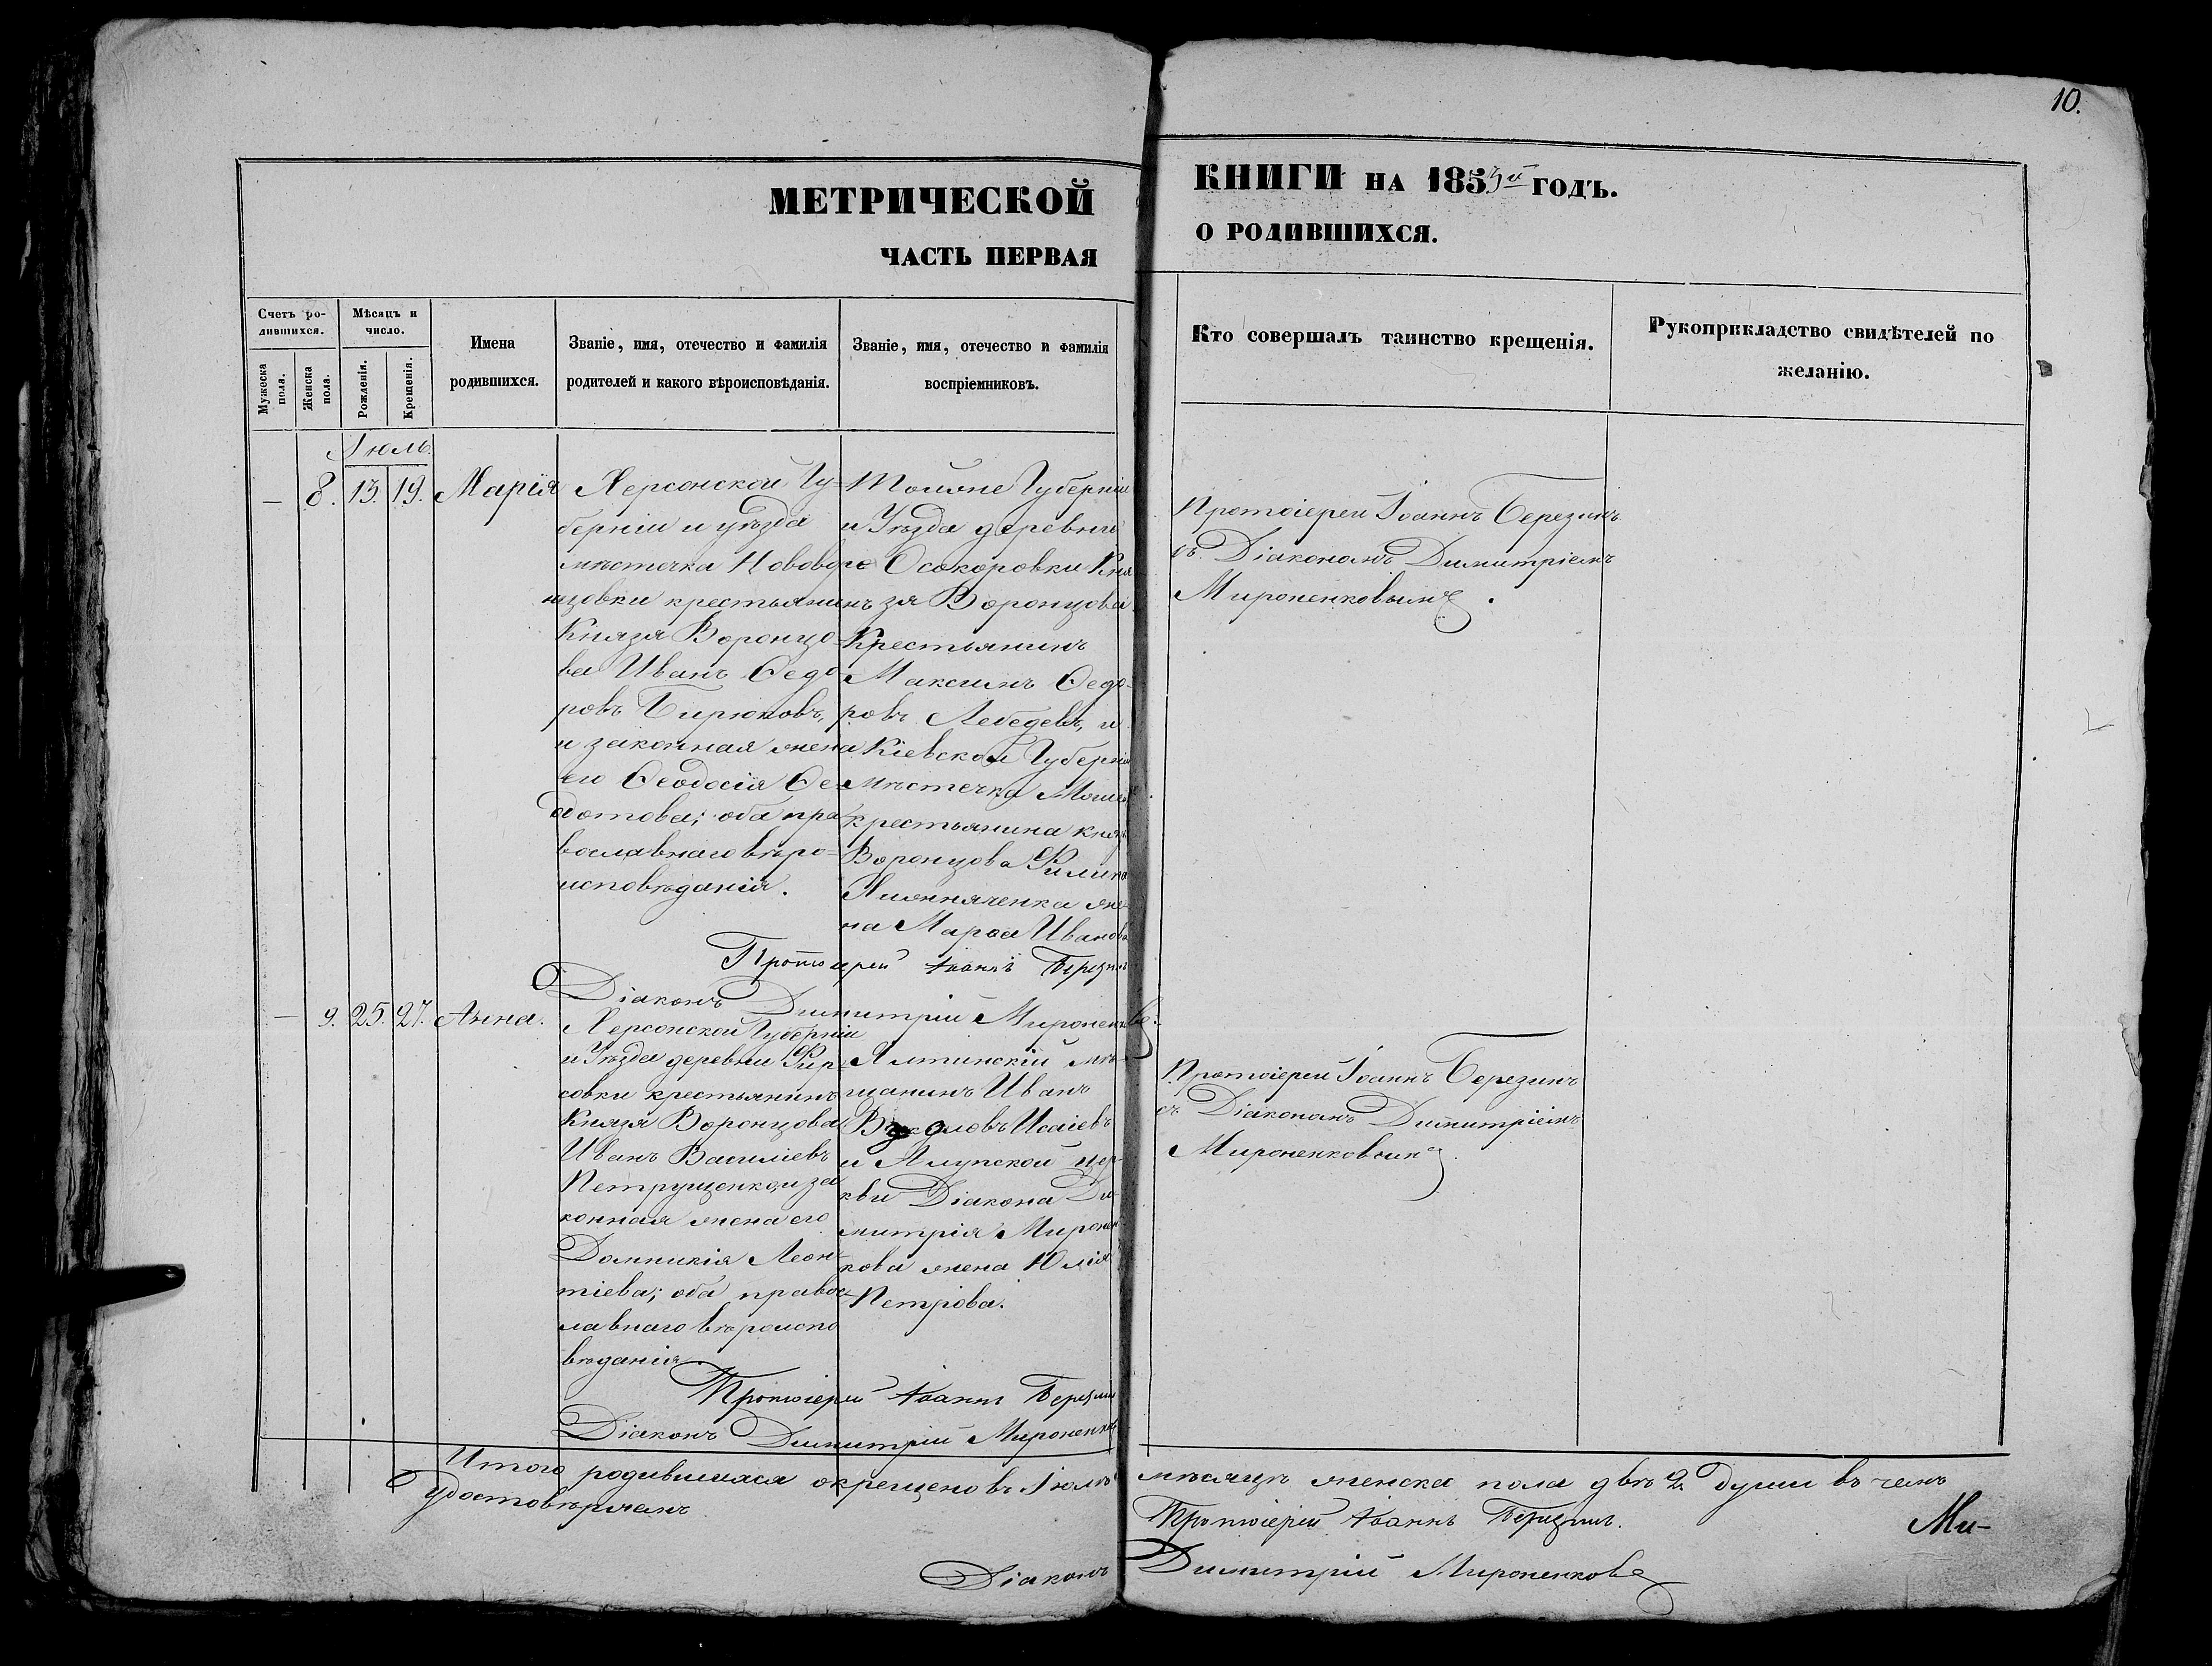 10.
МЕТРИЧЕСКОЙ КНИГИ НА 1853й ГОДЪ.
ЧАСТЬ ПЕРВАЯ О РОДИВШИХСЯ.
Счетъ ро-
дившихся.
Мужеска пола.
Женска пола.
Мѣсяцъ и
число.
Рожденія.
Крещенія.
Имена
родившихся.
Званіе, имя, отечество и фамилія
родителей и какого вѣроисповѣданія.
Званіе, имя, отечество и фамилія
воспріемниковъ.
Кто совершалъ таинство крещенія.
Рукоприкладство свидѣтелей по
желанію.
Іюль.
— 8. 13. 19. Марія
Херсонской Гу-
берніи и уѣзда
мѣстечка Нововоро
нцовки крестьянинъ
Князя Воронцо-
ва Иванъ Ѳедо-
ровъ Бирюковъ,
и законная жена
его Ѳеодосія Ѳе-
дотова; оба пра-
вославнаго вѣро-
исповѣданія.
Тойже Губерніи
и Уѣзда деревни
Осокоровки Кня
зя Воронцова
Крестьянинъ
Максимъ Ѳедо-
ровъ Лебедевъ, и
Кіевской Губерніи
мѣстечка
крестьянина князя
Воронцова Филипа
же-
на Марѳа Иванова
Протоіерей Іоаннъ Березинъ
съ Діакономъ Димитріемъ
Мироненковымъ.
Протоіерей Іоаннъ Березинъ
Діаконъ Димитрій Мироненковъ.
— 9. 25. 27. Анна.
Херсонской Губерніи
и Уѣзда деревни Фир-
совки крестьянинъ
Князя Воронцова
Иванъ Василіевъ
Петрущенко, и за
конная жена его
Домникія Леон-
тіева; оба правос-
лавнаго вѣроиспо
вѣданія.
Ялтинскій мѣ-
щанинъ Иванъ
Исаіевъ
и Алупской цер-
кви Діакона Ди-
митрія Миронен-
кова жена Юлія
Петрова.
Протоіерей Іоаннъ Березинъ
съ Діакономъ Димитріемъ
Мироненковымъ.
Протоіерей Іоаннъ Березинъ
Діаконъ Димитрій Мироненковъ
Итого родившихся окрещено въ Іюлѣ мѣсяцѣ женска пола двѣ 2. души въ чемъ
удостовѣряемъ
Протоіерей Іоаннъ Березинъ.
Ми-
Діаконъ Димитрій Мироненковъ